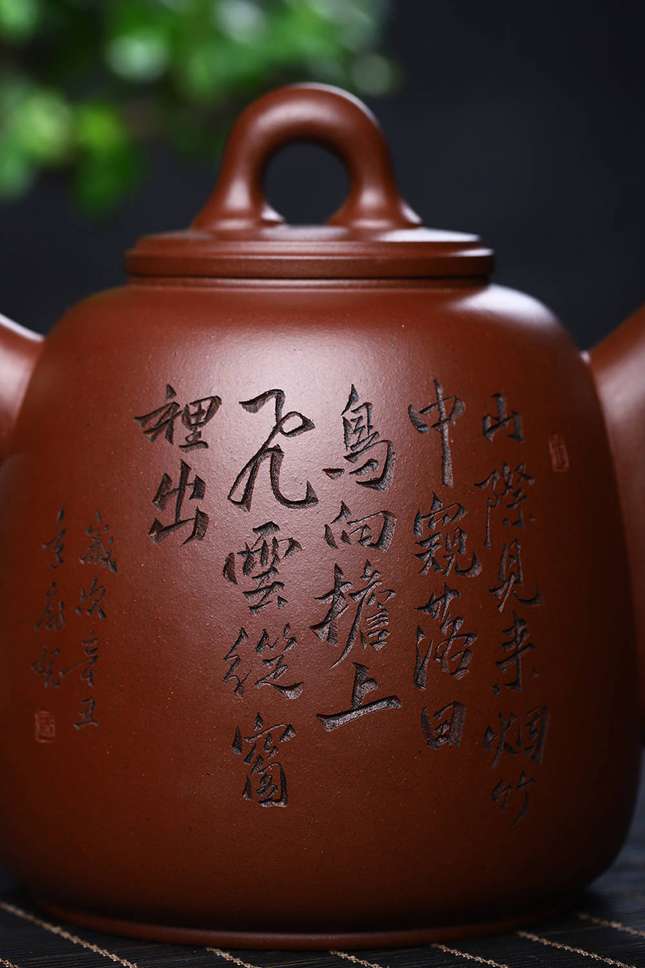 山際見来烟竹
中窺落日
鳥向檐上
飛雲從窗
裡出
歲次辛丑